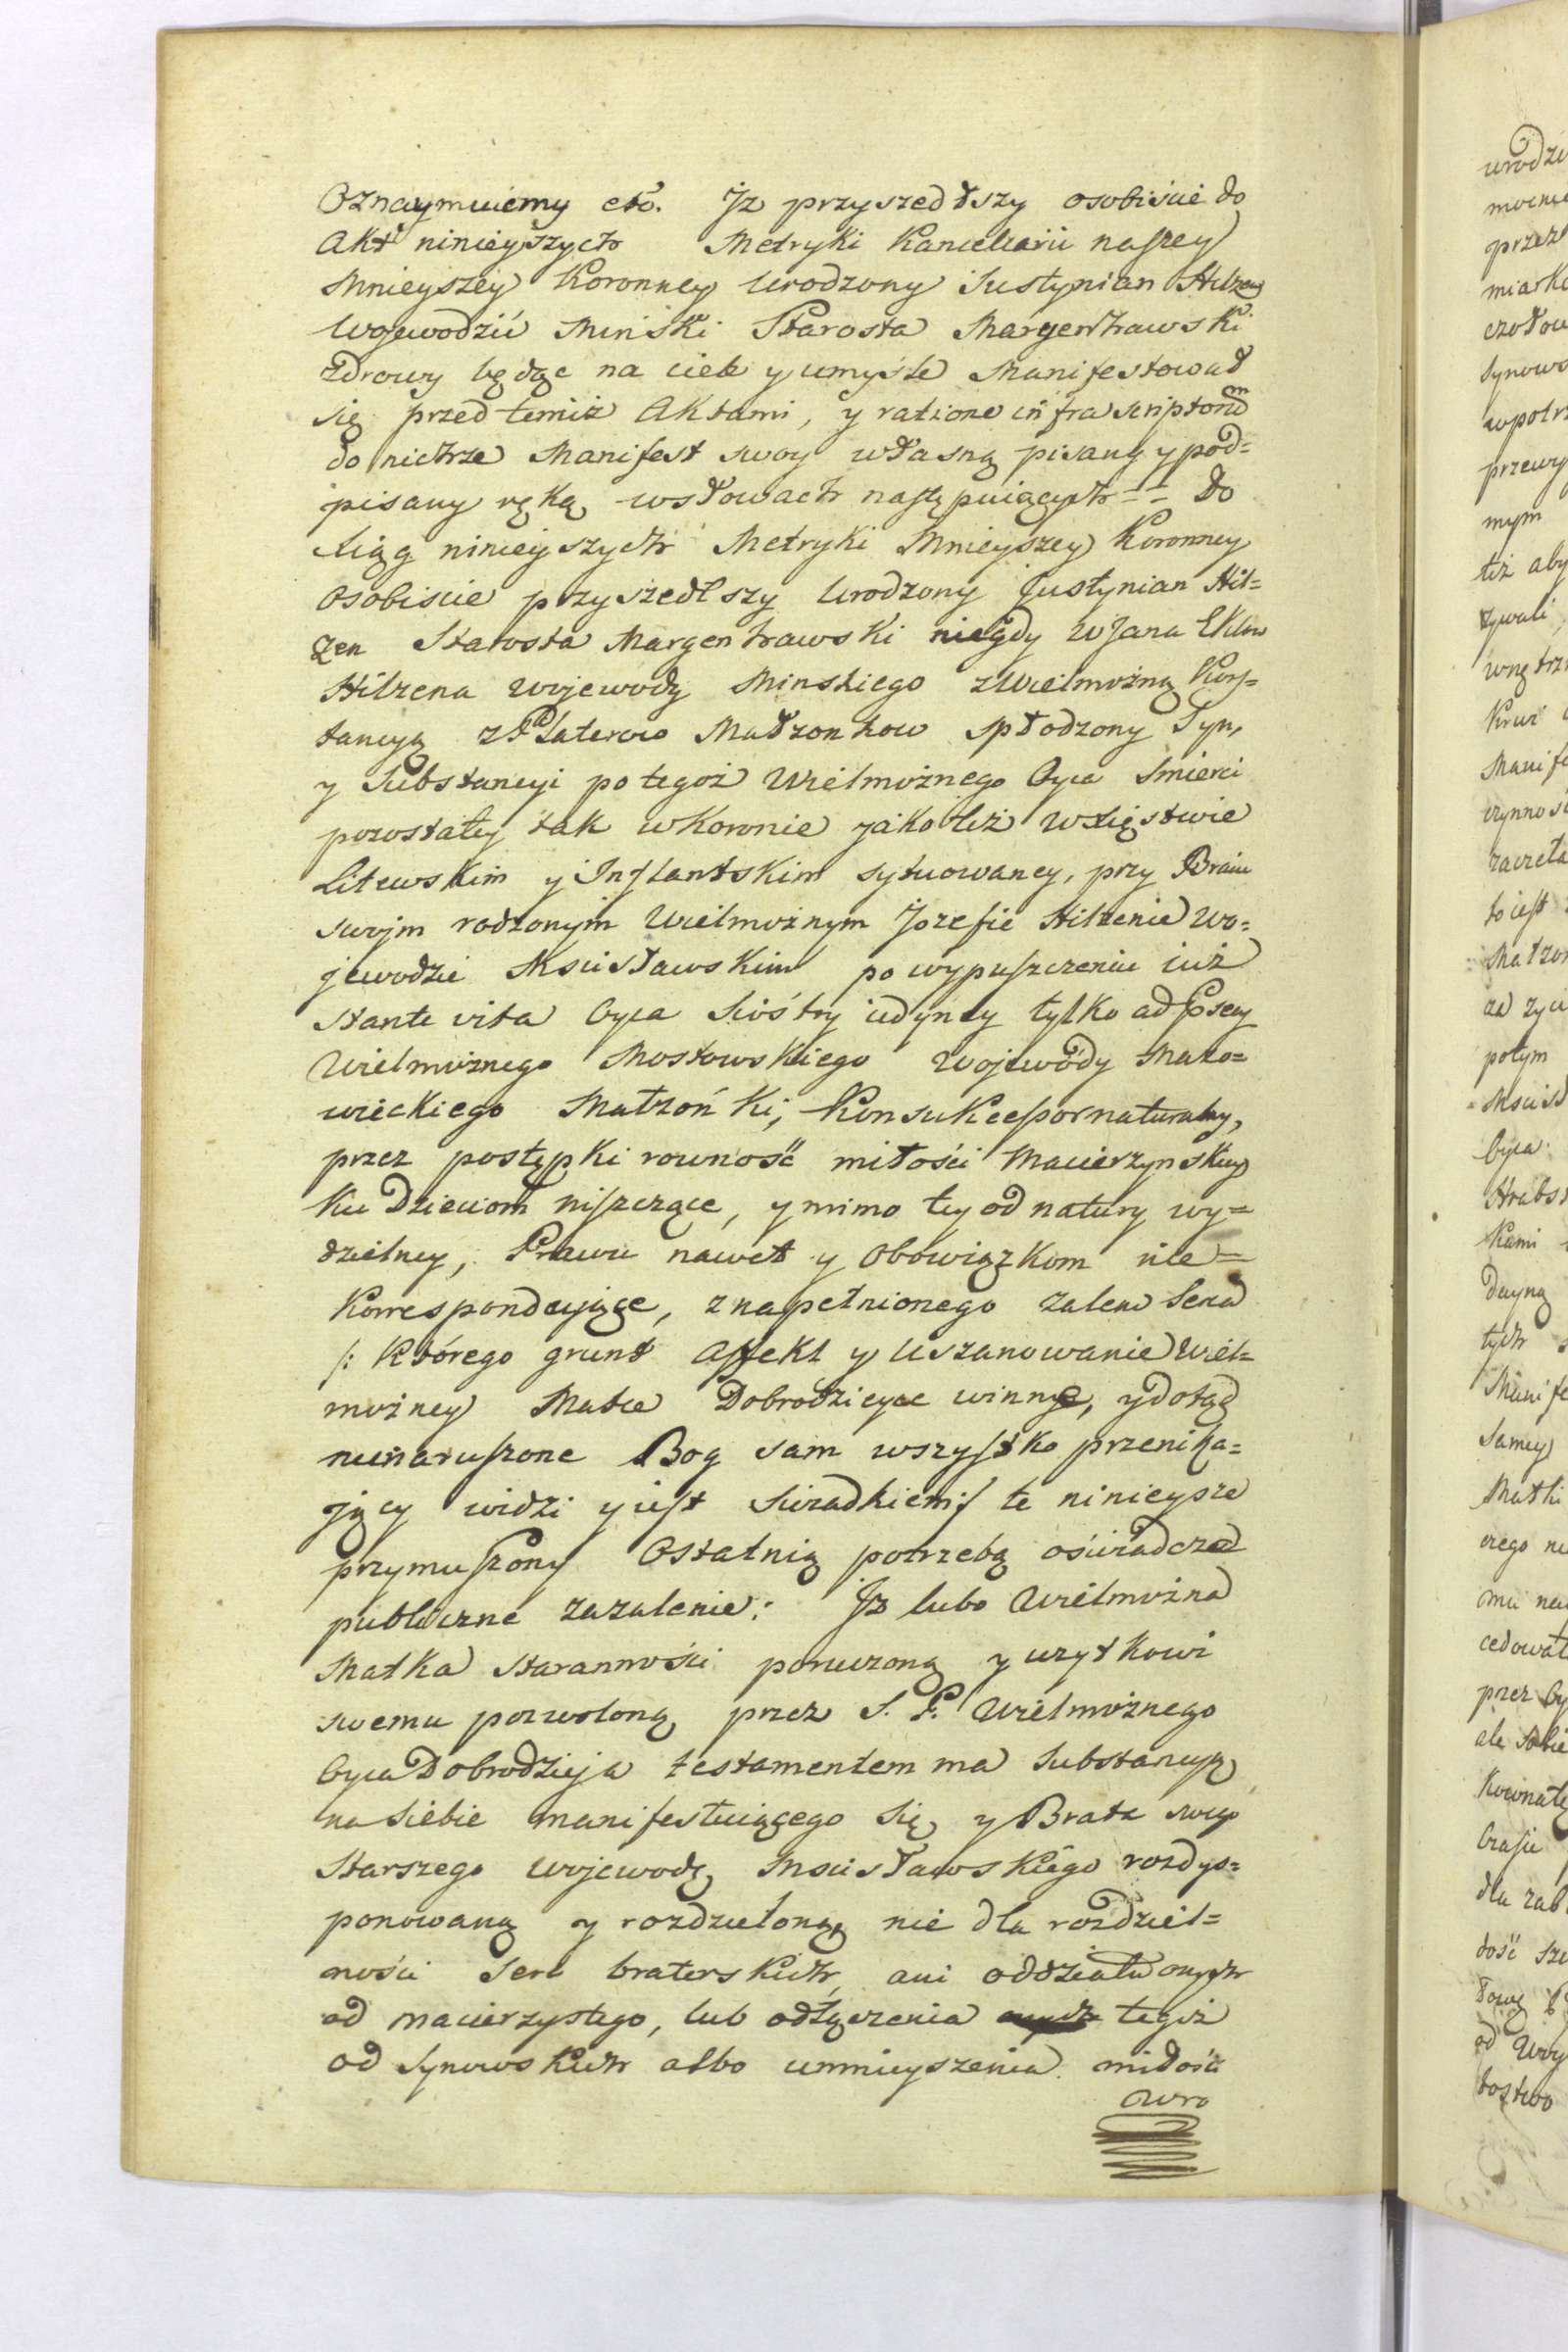 Oznaymuiemy etc. Jz przyszedłszy osobiście do
Akt ninieyszych Metryki Kancellarii naszey
Mnieyszey Koronney Urodzony Justynian Hilzen
Wojewodzic Miński Starosta Margenhawski
zdrowy będąc na ciele y umyśle Manifestował
się przed temiż Aktami, y ratione infra scriptorum
do nichże Manifest swoy własną pisany y pod=
pisany ręką w słowach następuiących == Do
Xiąg ninieyszych Metryki Mnieyszey Koronney
Osobiscie przyszedłszy Urodzony Justynian Hil=
zen Starosta Margenhawski niegdy W Jana
Hilzena Wojewody Minskiego z Wielmożną Kons=
tancyą z Platerow Małzonkow spłodzony Syn,
y Substancyi po tegoż Wielmożnego Oyca smierci
pozostałey tak w Koronie jako też w Xięstwie
Litewskim y Inflantskim sytuowaney, przy Bracie
swojm rodzonym Wielmożnym Jozefie Hilzenie Wo=
jewodzie Mscisławskim po wypuszczeniu iuż
stante vita Oyca Siostry iedyney tylko
Wielmożnego Mostowskiego Wojewody Mazo=
wieckiego Małzonki, Konsukcessor naturalny,
przez postępki rowność miłości Macierzynskiey
ku Dzieciom niszczące, y mimo tey od natury wy=
dzielney, Prawu nawet y Obowiązkom nie=
korrespondujące, z napełnionego zalem Serca
/: którego grunt affekt y Uszanowanie Wiel=
możney Matce Dobrodzieyce winnye, y dotąd
nienaruszone Bog sam wszystko przenika=
jący widzi y iest Swiadkiem :/ te ninieysze
przymuszony Ostatnią potrzebą oświadcza
publiczne zazalenie: Jz lubo Wielmożna
Matka Staranności poruczoną y uzytkowi
swemu pozwoloną przez S. P. Wielmożnego
Oyca Dobrodzieja testamentem ma Substancyą
na Siebie manifestuiącego się y Brata swego
Starszego Wojewodę Mscisławskiego rozdys=
ponowaną y rozdzieloną, nie dla rozdziel=
ności Serc braterskich, ani oddziału onych
od macierzystego, lub odłączenia tegoż
od Synowskich albo umnieyszenia miłości